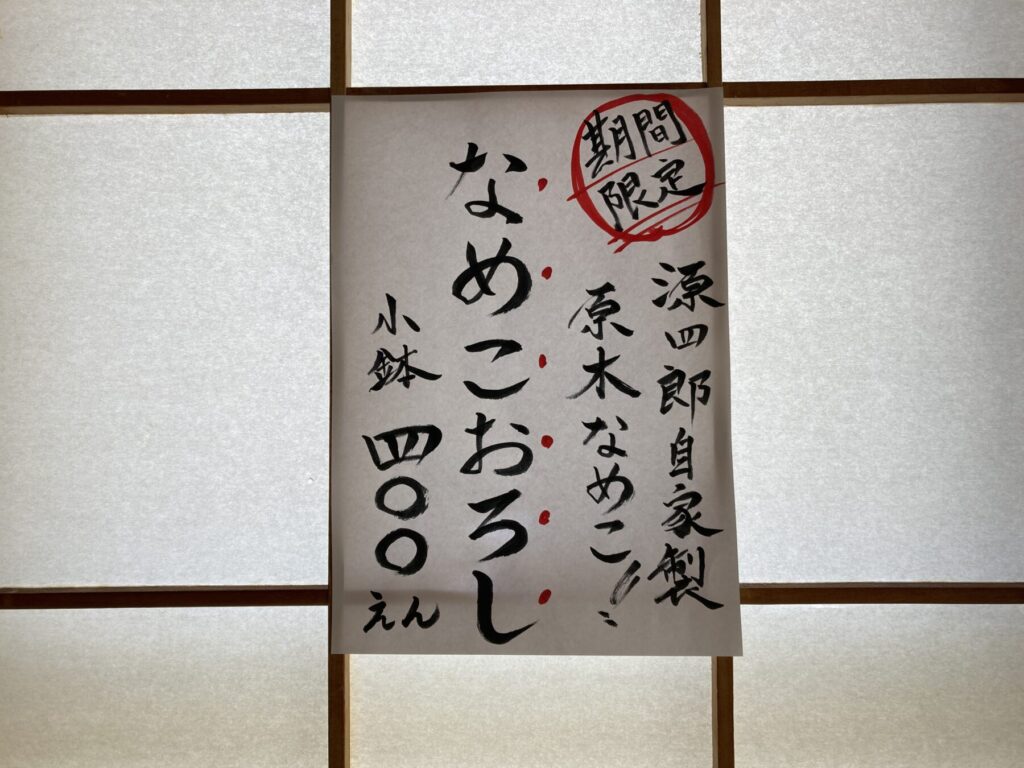 期間
限定
源四郎自家製
原木なめこ!!
なめこおろし
小鉢 四〇〇えん